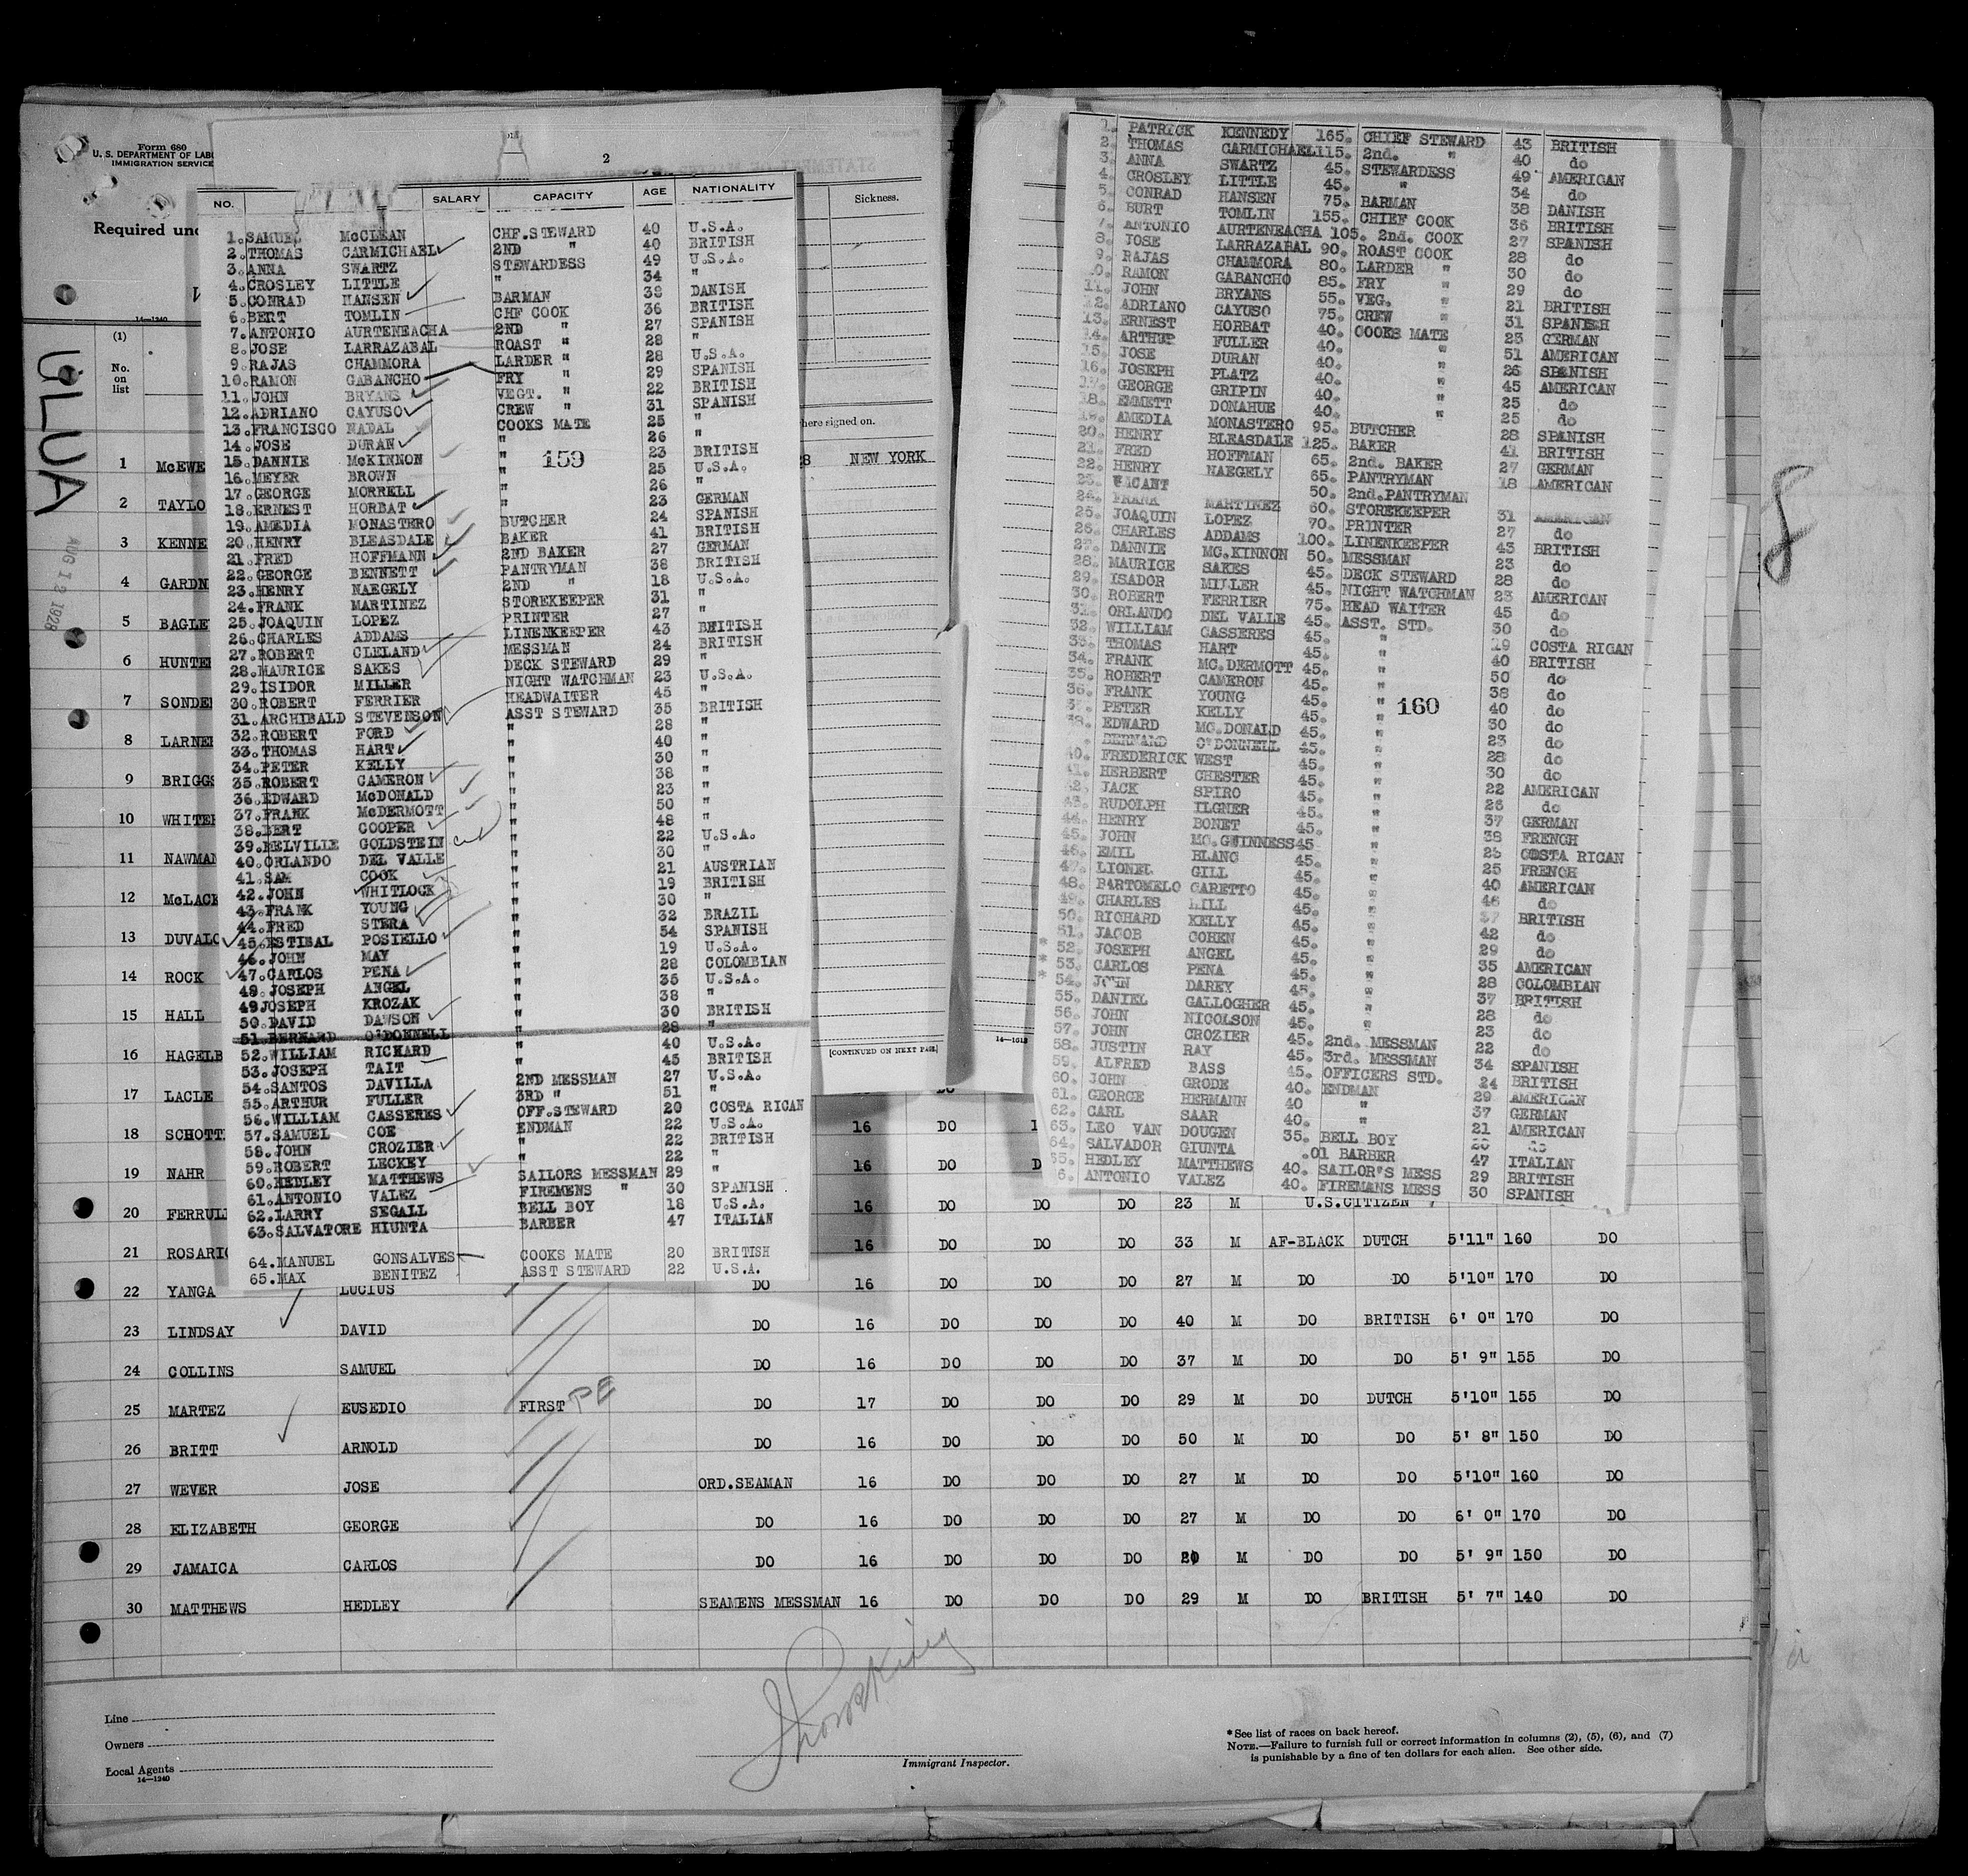 Form 680
U. S. DEPARTMENT OF LAB
IMMIGRATION SERVICE
Required und
14—1240
ULUA
AUG 12 1928
2
NO. SALARY CAPACITY AGE NATIONALITY
1. SAMUEL McCLEAN CHF.STEWARD 40 U.S.A.
2. THOMAS CARMICHAEL 2ND " 40 BRITISH
3. ANNA SWARTZ STEWARDESS 49 U.S.A.
4. CROSLEY LITTLE " 34 "
5. CONRAD HANSEN BARMAN 38 DANISH
6. BERT TOMLIN CHF COOK 36 BRITISH
7. ANTONIO AURTENEACHA 2ND " 27 SPANISH
8. JOSE LARRAZABAL ROAST " 28 "
9. RAJAS CHAMMORA LARDER " 28 U.S.A.
10. RAMON GABANCHO FRY " 29 SPANISH
11. JOHN BRYANS VEGT. " 22 BRITISH
12. ADRIANO CAYUSO CREW " 31 SPANISH
13. FRANCISCO NADAL COOKS MATE 25 "
14. JOSE DURAN " 26 "
15. DANNIE McKINNON " 23 BRITISH
159
16. MEYER BROWN " 25 U.S.A.
17. GEORGE MORRELL " 26 "
18. ERNEST HORBAT " 23 GERMAN
19. AMEDIA MONASTERO BUTCHER 24 SPANISH
20. HENRY BLEASDALE BAKER 41 BRITISH
21. FRED HOFFMANN 2ND BAKER 27 GERMAN
22. GEORGE BENNETT PANTRYMAN 38 BRITISH
23. HENRY NAEGELY 2ND " 18 U.S.A.
24. FRANK MARTINEZ STOREKEEPER 31 "
25. JOAQUIN LOPEZ PRINTER 27 "
26. CHARLES ADDAMS LINENKEEPER 43 BRITISH
27. ROBERT CLELAND MESSMAN 24 BRITISH
28. MAURICE SAKES DECK STEWARD 29 "
29. ISIDOR MILLER NIGHT WATCHMAN 23 U.S.A.
30. ROBERT FERRIER HEADWAITER 45 "
31. ARCHIBALD STEVENSON ASST STEWARD 35 BRITISH
32. ROBERT FORD " 28 "
33. THOMAS HART " 40 "
34. PETER KELLY " 30 "
35. ROBERT CAMERON " 38 "
36. EDWARD McDONALD " 23 "
37. FRANK McDERMOTT " 50 "
38. BERT COOPER " 48 "
39. BELVILLE GOLDSTEIN " 22 U.S.A.
40. ORLANDO DEL VALLE " 30 "
41. SAM COOK " 21 AUSTRIAN
42. JOHN WHITLOCK " 19 BRITISH
43. FRANK YOUNG " 30 "
44. FRED STERA " 32 BRAZIL
45. ESTIBAL POSIELLO " 54 SPANISH
46. JOHN MAY " 19 U.S.A.
47. CARLOS PENA " 28 COLOMBIAN
48. JOSEPH ANGEL " 35 U.S.A.
49 JOSEPH KROZAK " 38 "
50. DAVID DAWSON " 30 BRITISH
51. BERNARD O'DONNELL " 28 "
52. WILLIAM RICHARD " 40 U.S.A.
53. JOSEPH TAIT " 45 BRITISH
54. SANTOS DAVILLA 2ND MESSMAN 27 U.S.A.
55. ARTHUR FULLER 3RD " 51 "
56. WILLIAM CASSERES OFF.STEWARD 20 COSTA RICAN
57. SAMUEL COE ENDMAN 22 U.S.A.
58. JOHN CROZIER " 22 BRITISH
59. ROBERT LECKEY " 22 "
60. HEDLEY MATTHEWS SAILORS MESSMAN 29 "
61. ANTONIO VALEZ FIREMENS " 30 SPANISH
62. LARRY SEGALL BELL BOY 18 U.S.A.
63. SALVATORE HIUNTA BARBER 47 ITALIAN
64. MANUEL GONSALVES COOKS MATE 20 BRITISH
65. MAX BENITEZ ASST STEWARD 22 U.S.A.
Sickness.
here signed on.
8 NEW YORK
[CONTINUED ON NEXT PAGE]
14—1512
1. PATRICK KENNEDY 165. CHIEF STEWARD 43 BRITISH
2. THOMAS CARMICHAEL 115. 2nd. " 40 do
3. ANNA SWARTZ 45. STEWARDESS 49 AMERICAN
4. CROSLEY LITTLE 45. " 34 do
5. CONRAD HANSEN 75. BARMAN 38 DANISH
6. BURT TOMLIN 155. CHIEF COOK 36 BRITISH
7. ANTONIO AURTENEACHA 105. 2nd. COOK 27 SPANISH
8. JOSE LARRAZABAL 90. ROAST COOK 28 do
9. RAJAS CHAMMORA 80. LARDER " 30 do
10. RAMON GABANCHO 85. FRY " 29 do
11. JOHN BRYANS 55. VEG. " 21 BRITISH
12. ADRIANO CAYUSO 75. CREW " 31 SPANISH
13. ERNEST HORBAT 40. COOKS MATE 23 GERMAN
14. ARTHUR FULLER 40. " 51 AMERICAN
15. JOSE DURAN 40. " 26 SPANISH
16. JOSEPH PLATZ 40. " 45 AMERICAN
17. GEORGE GRIPIN 40. " 25 do
18. EMMETT DONAHUE 40. " 25 do
19. AMEDIA MONASTERO 95. BUTCHER 28 SPANISH
20. HENRY BLEASDALE 125. BAKER 41 BRITISH
21. FRED HOFFMAN 65. 2nd. BAKER 27 GERMAN
22. HENRY NAEGELY 65. PANTRYMAN 18 AMERICAN
23. VACANT 50. 2nd.PANTRYMAN
24. FRANK MARTINEZ 60. STOREKEEPER 31 AMERICAN
25. JOAQUIN LOPEZ 70. PRINTER 27 do
26. CHARLES ADDAMS 100. LINENKEEPER 43 BRITISH
27. DANNIE MC.KINNON 50. MESSMAN 23 do
28. MAURICE SAKES 45. DECK STEWARD 28 do
29. ISADOR MILLER 45. NIGHT WATCHMAN 23 AMERICAN
30. ROBERT FERRIER 75. HEAD WAITER 45 do
31. ORLANDO DEL VALLE 45. ASST. STD. 30 do
32. WILLIAM CASSERES 45. " 19 COSTA RIGAN
33. THOMAS HART 45. " 40 BRITISH
34. FRANK MC.DERMOTT 45. " 50 do
35. ROBERT CAMERON 45. " 38 do
36. FRANK YOUNG 45. " 40 do
160
37. PETER KELLY 45. " 30 do
38. EDWARD MC.DONALD 45. " 23 do
BERNARD O'DONNELL 45. " 28 do
40. FREDERICK WEST 45. " 30 do
41. HERBERT CHESTER 45. " 22 AMERICAN
42. JACK SPIRO 45. " 26 do
43. RUDOLPH ILGNER 45. " 37 GERMAN
44. HENRY BONET 45. " 38 FRENCH
45. JOHN MC.GUINNESS 45 " 25 COSTA RICAN
46. EMIL BLANC 45. " 25 FRENCH
47. LIONEL GILL 45. " 40 AMERICAN
48. BARTOMELO GARETTO 45. " 46 do
49. CHARLES HILL 45. " 37 BRITISH
50. RICHARD KELLY 45. " 42 do
51. JACOB COHEN 45. " 29 do
* 52. JOSEPH ANGEL 45. " 35 AMERICAN
* 53. CARLOS PENA 45. " 28 COLOMBIAN
* 54. JOHN DAREY 45. " 37 BRITISH
55. DANIEL GALLOGHER 45. " 28 do
56. JOHN NICOLSON 45. " 23 do
57. JOHN CROZIER 45. 2nd. MESSMAN 22 do
58. JUSTIN RAY 45. 3rd. MESSMAN 34 SPANISH
59. ALFRED BASS 45. OFFICERS STD. 24 BRITISH
60. JOHN GRODE 40. ENDMAN 29 AMERICAN
61. GEORGE HERMANN 40 " 37 GERMAN
62. CARL SAAR 40. " 21 AMERICAN
63. LEO VAN DOUGEN 35. BELL BOY
64. SALVADOR GIUNTA .01 BARBER 47 ITALIAN
65. HEDLEY MATTHEWS 40. SAILOR'S MESS 29 BRITISH
6. ANTONIO VALEZ 40. FIREMANS MESS 30 SPANISH
8
(1)
No. on list
1 McEWE
2 TAYLO
3 KENNE
4 GARDN
5 BAGLE
6 HUNTE
7 SONDE
8 LARNE
9 BRIGGS
10 WHITE
11 NAWMAN
12 McLACK
13 DUVALO
14 ROCK
15 HALL
16 HAGELB
17 LACLE
18 SCHOTT 16 DO
19 NAHR 16 DO
20 FERRUL 16 DO DO DO 23 M U.S.CITIZEN
21 ROSARIO 16 DO DO DO 33 M AF-BLACK DUTCH 5'11" 160 DO
22 YANGA LUCIUS DO 16 DO DO DO 27 M DO DO 5'10" 170 DO
23 LINDSAY DAVID DO 16 DO DO DO 40 M DO BRITISH 6' 0" 170 DO
24 COLLINS SAMUEL DO 16 DO DO DO 37 M DO DO 5' 9" 155 DO
25 MARTEZ EUSEDIO FIRST PE DO 17 DO DO DO 29 M DO DUTCH 5'10" 155 DO
26 BRITT ARNOLD DO 16 DO DO DO 50 M DO DO 5' 8" 150 DO
27 WEVER JOSE ORD.SEAMAN 16 DO DO DO 27 M DO DO 5'10" 160 DO
28 ELIZABETH GEORGE DO 16 DO DO DO 27 M DO DO 6' 0" 170 DO
29 JAMAICA CARLOS DO 16 DO DO DO 20 M DO DO 5' 9" 150 DO
30 MATTHEWS HEDLEY SEAMENS MESSMAN 16 DO DO DO 29 M DO BRITISH 5' 7" 140 DO
Line
Owners
Local Agents
14—1240
Immigrant Inspector.
* See list of races on back hereof.
NOTE.—Failure to furnish full or correct information in columns (2), (5), (6), and (7)
is punishable by a fine of ten dollars for each alien. See other side.